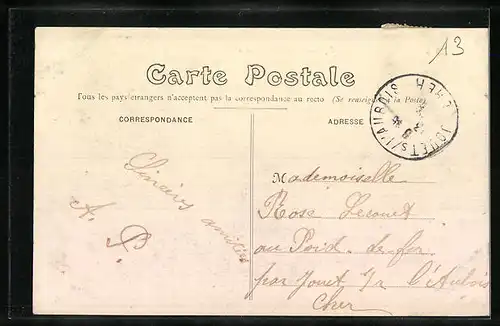 13
Carte Postale
Tous les pays étrangers n'acceptent pas la correspondance au recto (Se renseigner à la Poste)
CORRESPONDANCE
ADRESSE
JOUET S/L'AUBOIS CHER
Sincères
amitiés
A. P.
Mademoiselle
Rose Lecouet
au Poid. de fer
par Jouet s/r l'Aubois
Cher